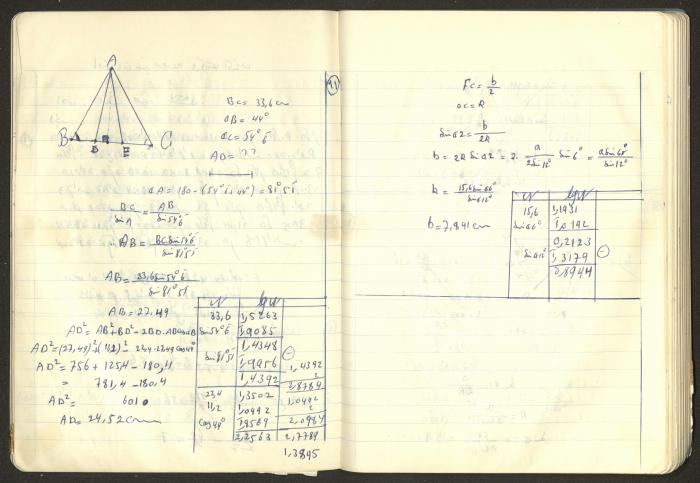 A
B
B
E
C
BC = 33,6 cm
∢B = 44°
∢C = 54° 6'
AD = ??
∢A = 180 - (54° 6' + 44°) = 81° 54'
BC/sin A = AB/sin 54° 6'
AB = BC sin 54° 6'/sin 81° 54'
AB = 33,6 sin 54° 6'/sin 81° 54'
AB = 27,49
AD² = AB² + BD² - 2BD·AB cos B
AD² = (27,49)² + (11,2)² - 22,4·27,49 cos 44°
AD² = 756 + 125,4 - 180,4
= 781,4 - 180,4
AD² = 601
AD = 24,52 cm
N log N
33,6 1,5263
sin 54° 6' 1,9085
1,4348
sin 81° 54' 1,9956
1,4392
1,4392
2
2,8784
22,4 1,3502
11,2 1,0492
cos 44° 1,8569
2,2563
1,0492
2
2,0984
2,7789
1,3895
91
FC = b/2
OC = R
sin α2 = b/2R
b = 2R sin α2 = 2 · a/2 sin 12° · sin 6° = a sin 66°/sin 12°
b = 15,6 sin 66/sin 12°
b = 7,841 cm
N log N
15,6 1,1931
sin 66° 1,0192
0,2123
sin 12° 1,3179
0,8944